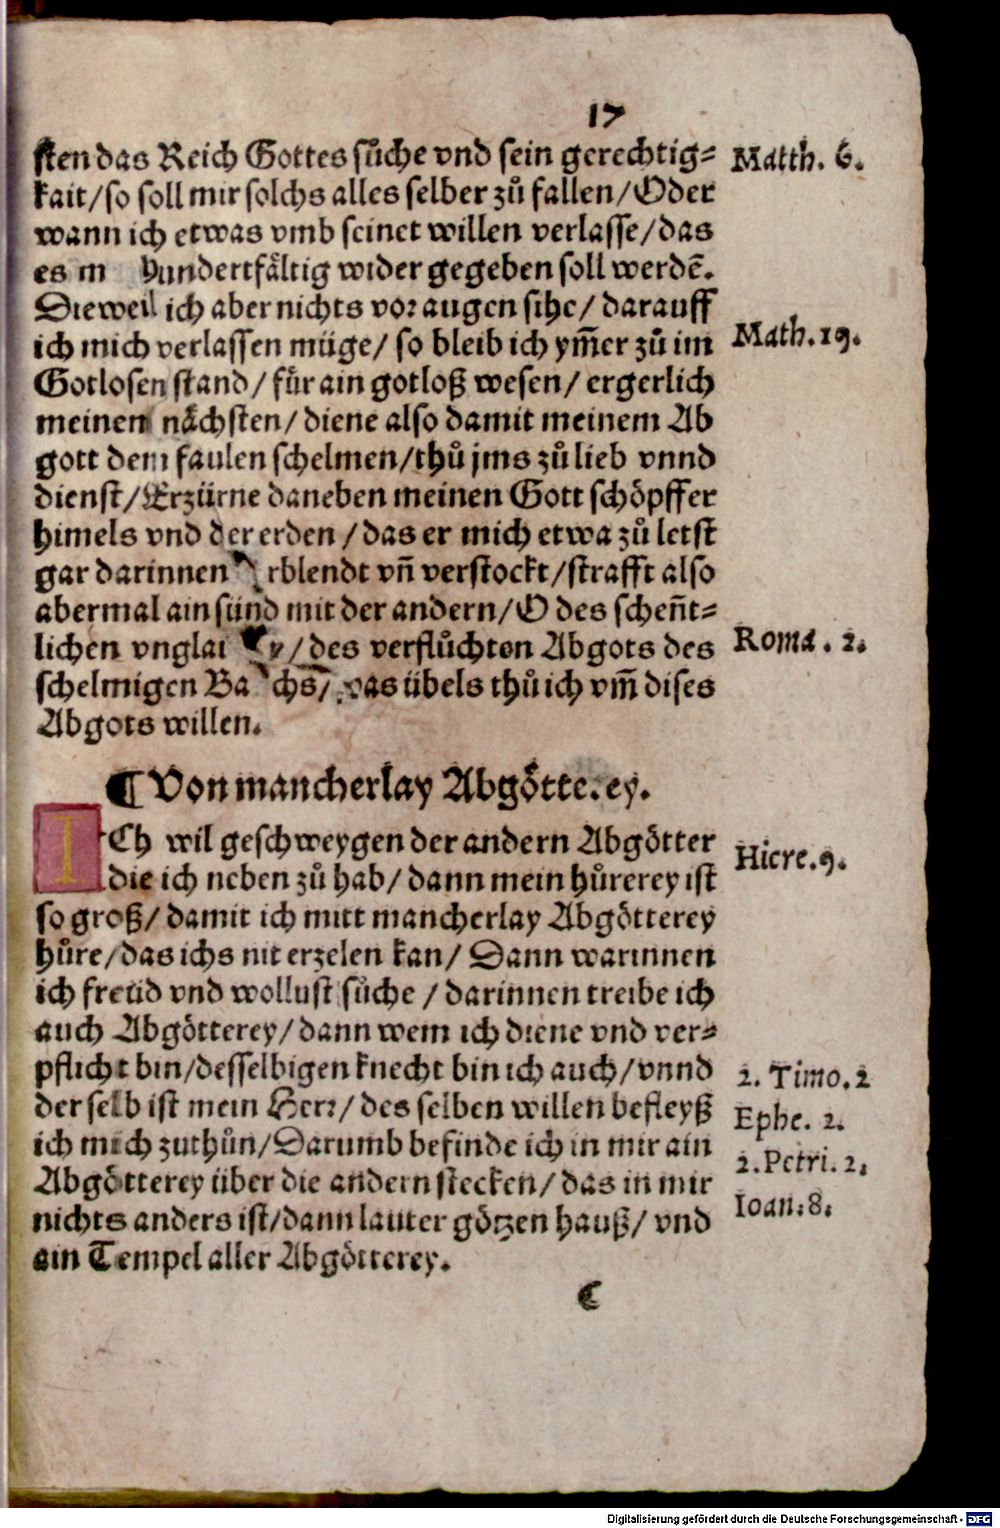 17
sten das Reich Gottes sůche vnd sein gerechtig⸗ Matth. 6.
kait/so soll mir solchs alles selber zů fallen/Oder
wann ich etwas vmb seinet willen verlasse/das
es m hundertfåltig wider gegeben soll werdē.
Dieweil ich aber nichts vor augen sihe/ darauff
ich mich verlassen müge/ so bleib ich ym̄er zů im Math.19.
Gotlosen stand/ für ain gotloß wesen/ ergerlich
meinen nåchsten/ diene also damit meinem Ab
gott dem faulen schelmen/thů jms zů lieb vnnd
dienst/Erzürne daneben meinen Gott schöpffer
himels vnd der erden /das er mich etwa zů letst
gar darinnen rblendt vn̄ verstockt/strafft also
abermal ain sünd mit der andern/O des schen̄t⸗
lichen vnglau y/des verflůchten Abgots des Roma. 2.
schelmigen Ba chs/ was übels thů ich vm̄ dises
Abgots willen.
¶ Von mancherlay Abgötterey.
ICh wil geschweygen der andern Abgötter Hiere.9.
die ich neben zů hab/ dann mein hůrerey ist
so groß/ damit ich mitt mancherlay Abgötterey
hůre/das ichs nit erzelen kan/ Dann warinnen
ich freüd vnd wollust sůche / darinnen treibe ich
auch Abgötterey/ dann wem ich diene vnd ver⸗
pflicht bin/desselbigen knecht bin ich auch/vnnd 2. Timo.2
der selb ist mein Herr/ des selben willen befleyß Ephe. 2.
ich mich zuthůn/Darumb befinde ich in mir ain 2.Petri.2.
Abgötterey über die andern stecken/ das in mir Ioan.8.
nichts anders ist/dann lauter götzen hauß/ vnd
ain Tempel aller Abgötterey.
C
Digitalisierung gefördert durch die Deutsche Forschungsgemeinschaft - DFG